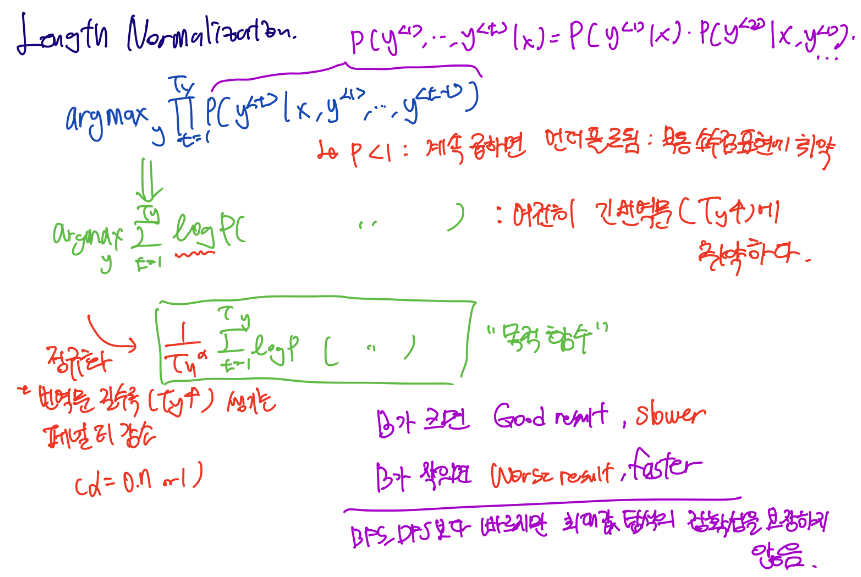 Length Normalization.
P(y<1>, ..., y<t>|x) = P(y<1>|x) · P(y<2>|x, y<1>). ...
argmax y ∏ t=1 Ty P(y<t>|x, y<1>, ..., y<t-1>)
↳ P<1 : 계속 곱하면 언더플로됨 : 부동소수점표현에 취약
⇓
argmax y ∑ t=1 Ty log P( " ) : 여전히 긴번역문(Ty↑)에
취약하다.
1/Ty^α ∑ t=1 Ty log P ( " ) "목적 함수"
정규화
번역문 길수록 (Ty↑) 생기는
페널티 감소
(α=0.7 or 1)
B가 크면 Good result, slower
B가 작으면 Worse result, faster
BFS, DFS보다 빠르지만 최대값 탐색의 정확성을 보장하지
않음.